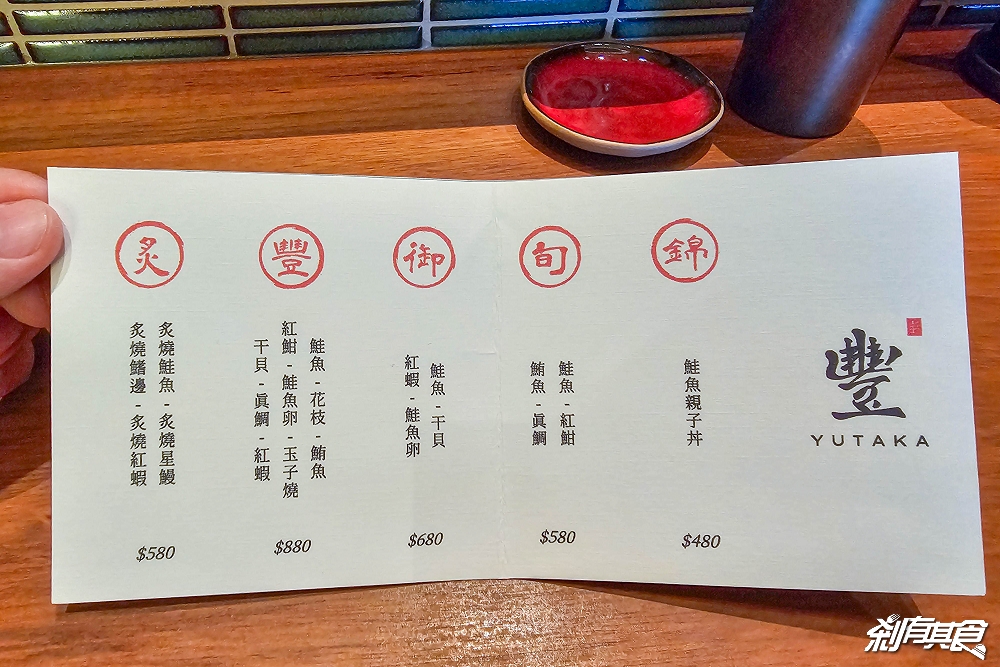 豐
YUTAKA
錦
鮭魚親子丼
$480
旬
鮭魚-紅魽
鮪魚-真鯛
$580
御
鮭魚-干貝
紅蝦-鮭魚卵
$680
豐
鮭魚-花枝-鮪魚
紅魽-鮭魚卵-玉子燒
干貝-真鯛-紅蝦
$880
炙
炙燒鮭魚-炙燒星鰻
炙燒鰭邊-炙燒紅蝦
$580
剎有其食